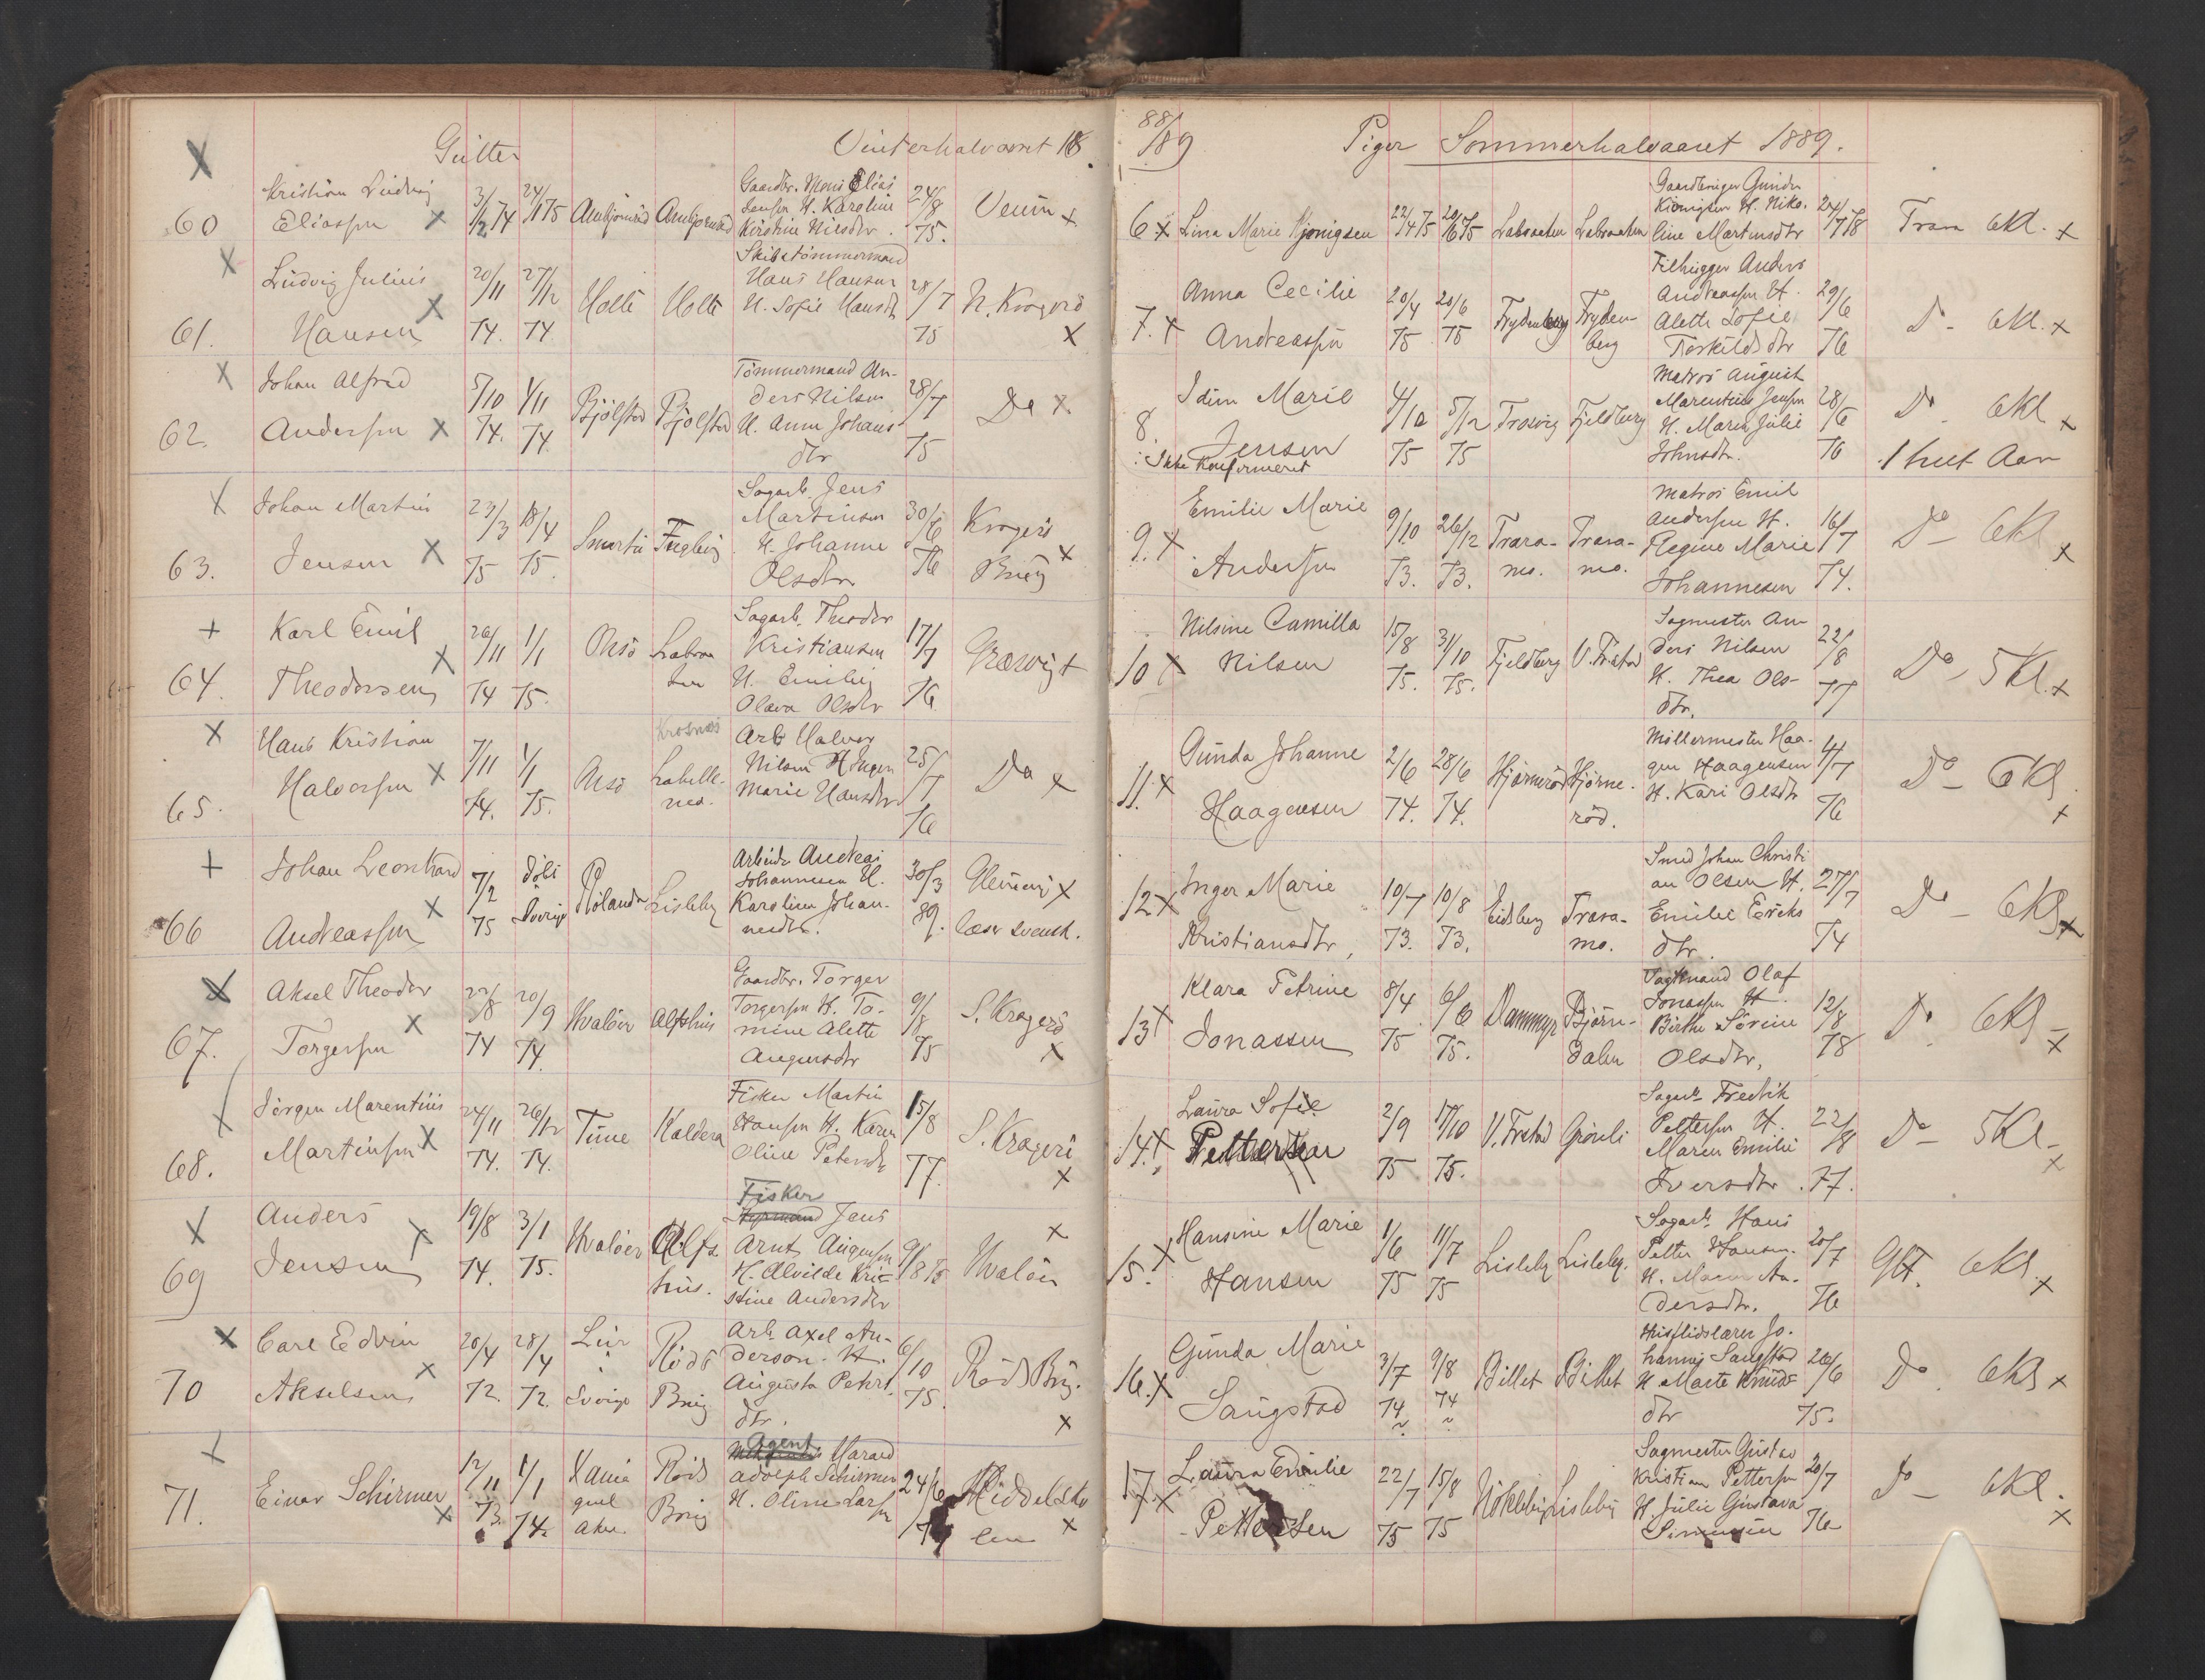 Gutter Vinterhalvaaret 18
60
Kristian Ludvig
Eliassen x
3/12 74
24/1 75
Gaardbr. Mons Elias
Jensen H. Karoline
Kirstine Nilsdtr.
24/8
75.
Veum x
61.
Ludvig Julius
Hansen
20/11
74.
27/12
74
Holte
Holte
Skibstømmermand
Hans Hansen
H. Sofie Hansdtr
28/7
75
N. Kragerö
x
62.
Johan Alfred
Andersen x
5/10
74.
1/11
74.
Bjölstad
Bjölstad
Tömmermand An-
ders Nilsen
H. Anna Johans
dtr
28/7
75
Do x
63.
Johan Martin
Jensen x
23/3
75
18/4
75.
Smertu
Fuglevig
Sagarb. Jens
Martinsen
H. Johanne
Olsdtr
30/6
76
Kragerö
Brug x
64.
Karl Emil
Theodorsen x
26/11
74
1/1
75.
Onsö
Sagarb. Theodor
Kristiansen
H. Emilie
Olava Olsdtr
17/7
76
Græsvig x
65.
Hans Kristian
Halvorsen x
7/11
74.
1/1
75.
Onsö
Krosnæs
Labelle-
mo.
Arb Halvor
Nilsen H Inger
Marie Hansdtr
25/7
76
Do x
66
Johan Leonhard
Andreassen x
7/2
75
döbt
Sverige
Rolands
Lisleby
Arbeider Andreas
Johannesen H.
Karoline Johan-
nesdtr.
30/3
89.
Glemmen x
læser svensk.
67.
Aksel Theodor
Torgersen x
22/8
74
20/9
74.
Hvalöer
Alfshus
Gaardbr. Torger
Torgersen H. To-
mine Alette
Augensdtr
9/8
75
S. Kragerö
x
68.
Jörgen Marentius
Martinsen x
24/11
74.
26/12
74.
Tune
Kaldera
Fisker Martin
Hansen H. Karen
Oline Petersdtr
15/8
77.
S. Kragerö
x
69
Anders
Jensen
19/8
74.
3/1
75.
Hvalöer
Alfs-
hus.
Fisker
Jens
Arnt Augensen
H. Alvilde Kri-
stine Andersdtr
9/8 75
x
Hvalöer
70
Carl Edvin
Akselsen x
20/4
72.
28/4
72.
Lur
i
Sverige
Röds
Brug
Arb. Axel An-
derson. H.
Augusta Peters
dtr.
6/10
75.
Röds Brug.
x
71.
Einar Schirmer
x
12/11
73.
1/1
74.
Xania
Aker
Röds
Brug
Agent
Harald
Adolph Schirmer
H. Oline Larsen
24/6
Middelsko
len x
88/89 Piger Sommerhalvaaret 1889.
6 x Lina Marie Kjönigsen
22/4 75
20/6 75
Labraaten
Labraaten
Gaardbruger Gunder
Kiönigsen H. Niko-
line Martinsdtr
24/7 78
Trara 6Kl. x
7. x
Anna Cecilie
Andreassen
20/4
75
20/6
75
Frydenberg
Fryden-
berg
Filhugger Anders
Andreassen H.
Alette Sofie
Torkildsdtr
29/6
76
Do - 6Kl. x
8.
Idun Marie
Jensen
: Ikke Konfirmeret
4/10
75
5/12
75
Trosvig
Fjeldberg
Matros August
Marentius Jensen
H. Maren Julie
Johnsdtr.
28/6
76
Do 6Kl x
1 helt Aar
9. x
Emilie Marie
Andersen
9/10
73.
26/12
73.
Trara-
mo.
Trara-
mo.
Matros Emil
Andersen H.
Regine Marie
Johannesen
16/7
74.
Do - 6Kl x
10 x
Nilsine Camilla
Nilsen
15/8
75.
31/10
75.
Fjeldberg
V. Frstad
Sagmester An
ders Nilsen
H. Thea Ols-
dtr.
22/8
77
Do - 5Kl. x
11. x
Gunda Johanne
Haagensen
2/6
74.
28/6
74.
Hjörneröd
Hjörne-
röd.
Möllermester Haa-
gen Haagensen
H. Kari Olsdtr
4/7
76
Do - 6Kl.
x
12 x
Inger Marie
Kristiansdtr,
10/7
73.
10/8
73.
Eidsberg
Trara-
mo.
Smed Johan Christi
an Olsen H.
Emilie Eriks
dtr.
27/7
74
Do - 6Kl x
13 x
Klara Petrine
Jonassen
8/4
75
6/6
75.
Dammyr
Bjørn-
dalen
Olaf
Jonassen H.
Birthe Sörine
Olsdtr,
12/8
78
Do 6Kl -
x
14. x
Laura Sofie
Pettersen
2/9
75
17/10
75.
V. Frstad
Grönli
Sagarb Fredrik
Pettersen H.
Maren Emilie
Iversdtr.
22/8
77.
Do - 5Kl -
x
15. x
Hansine Marie
Hansen
1/6
75
11/7
75
Lisleby
Lisleby.
Sagarb. Hans
Petter Hansen.
H. Maren An-
dersdtr.
20/7
76
Glt. 6Kl. x
16. x
Gunda Marie
Saugstad
3/7
74
9/8
74
Billet
Billet
Husflidslærer Jo-
hannes Saugstad
H Marte Knuds
dtr
26/6
75.
Do. 6Kl x
17. x
Laura Emilie
- Pettersen
22/7
75
15/8
75
Nökleby
Lisleby
Sagmester Gustav
Kristian Pettersen
H. Julie Gustava
Simensen
20/7
76
Do - 6Kl.
x